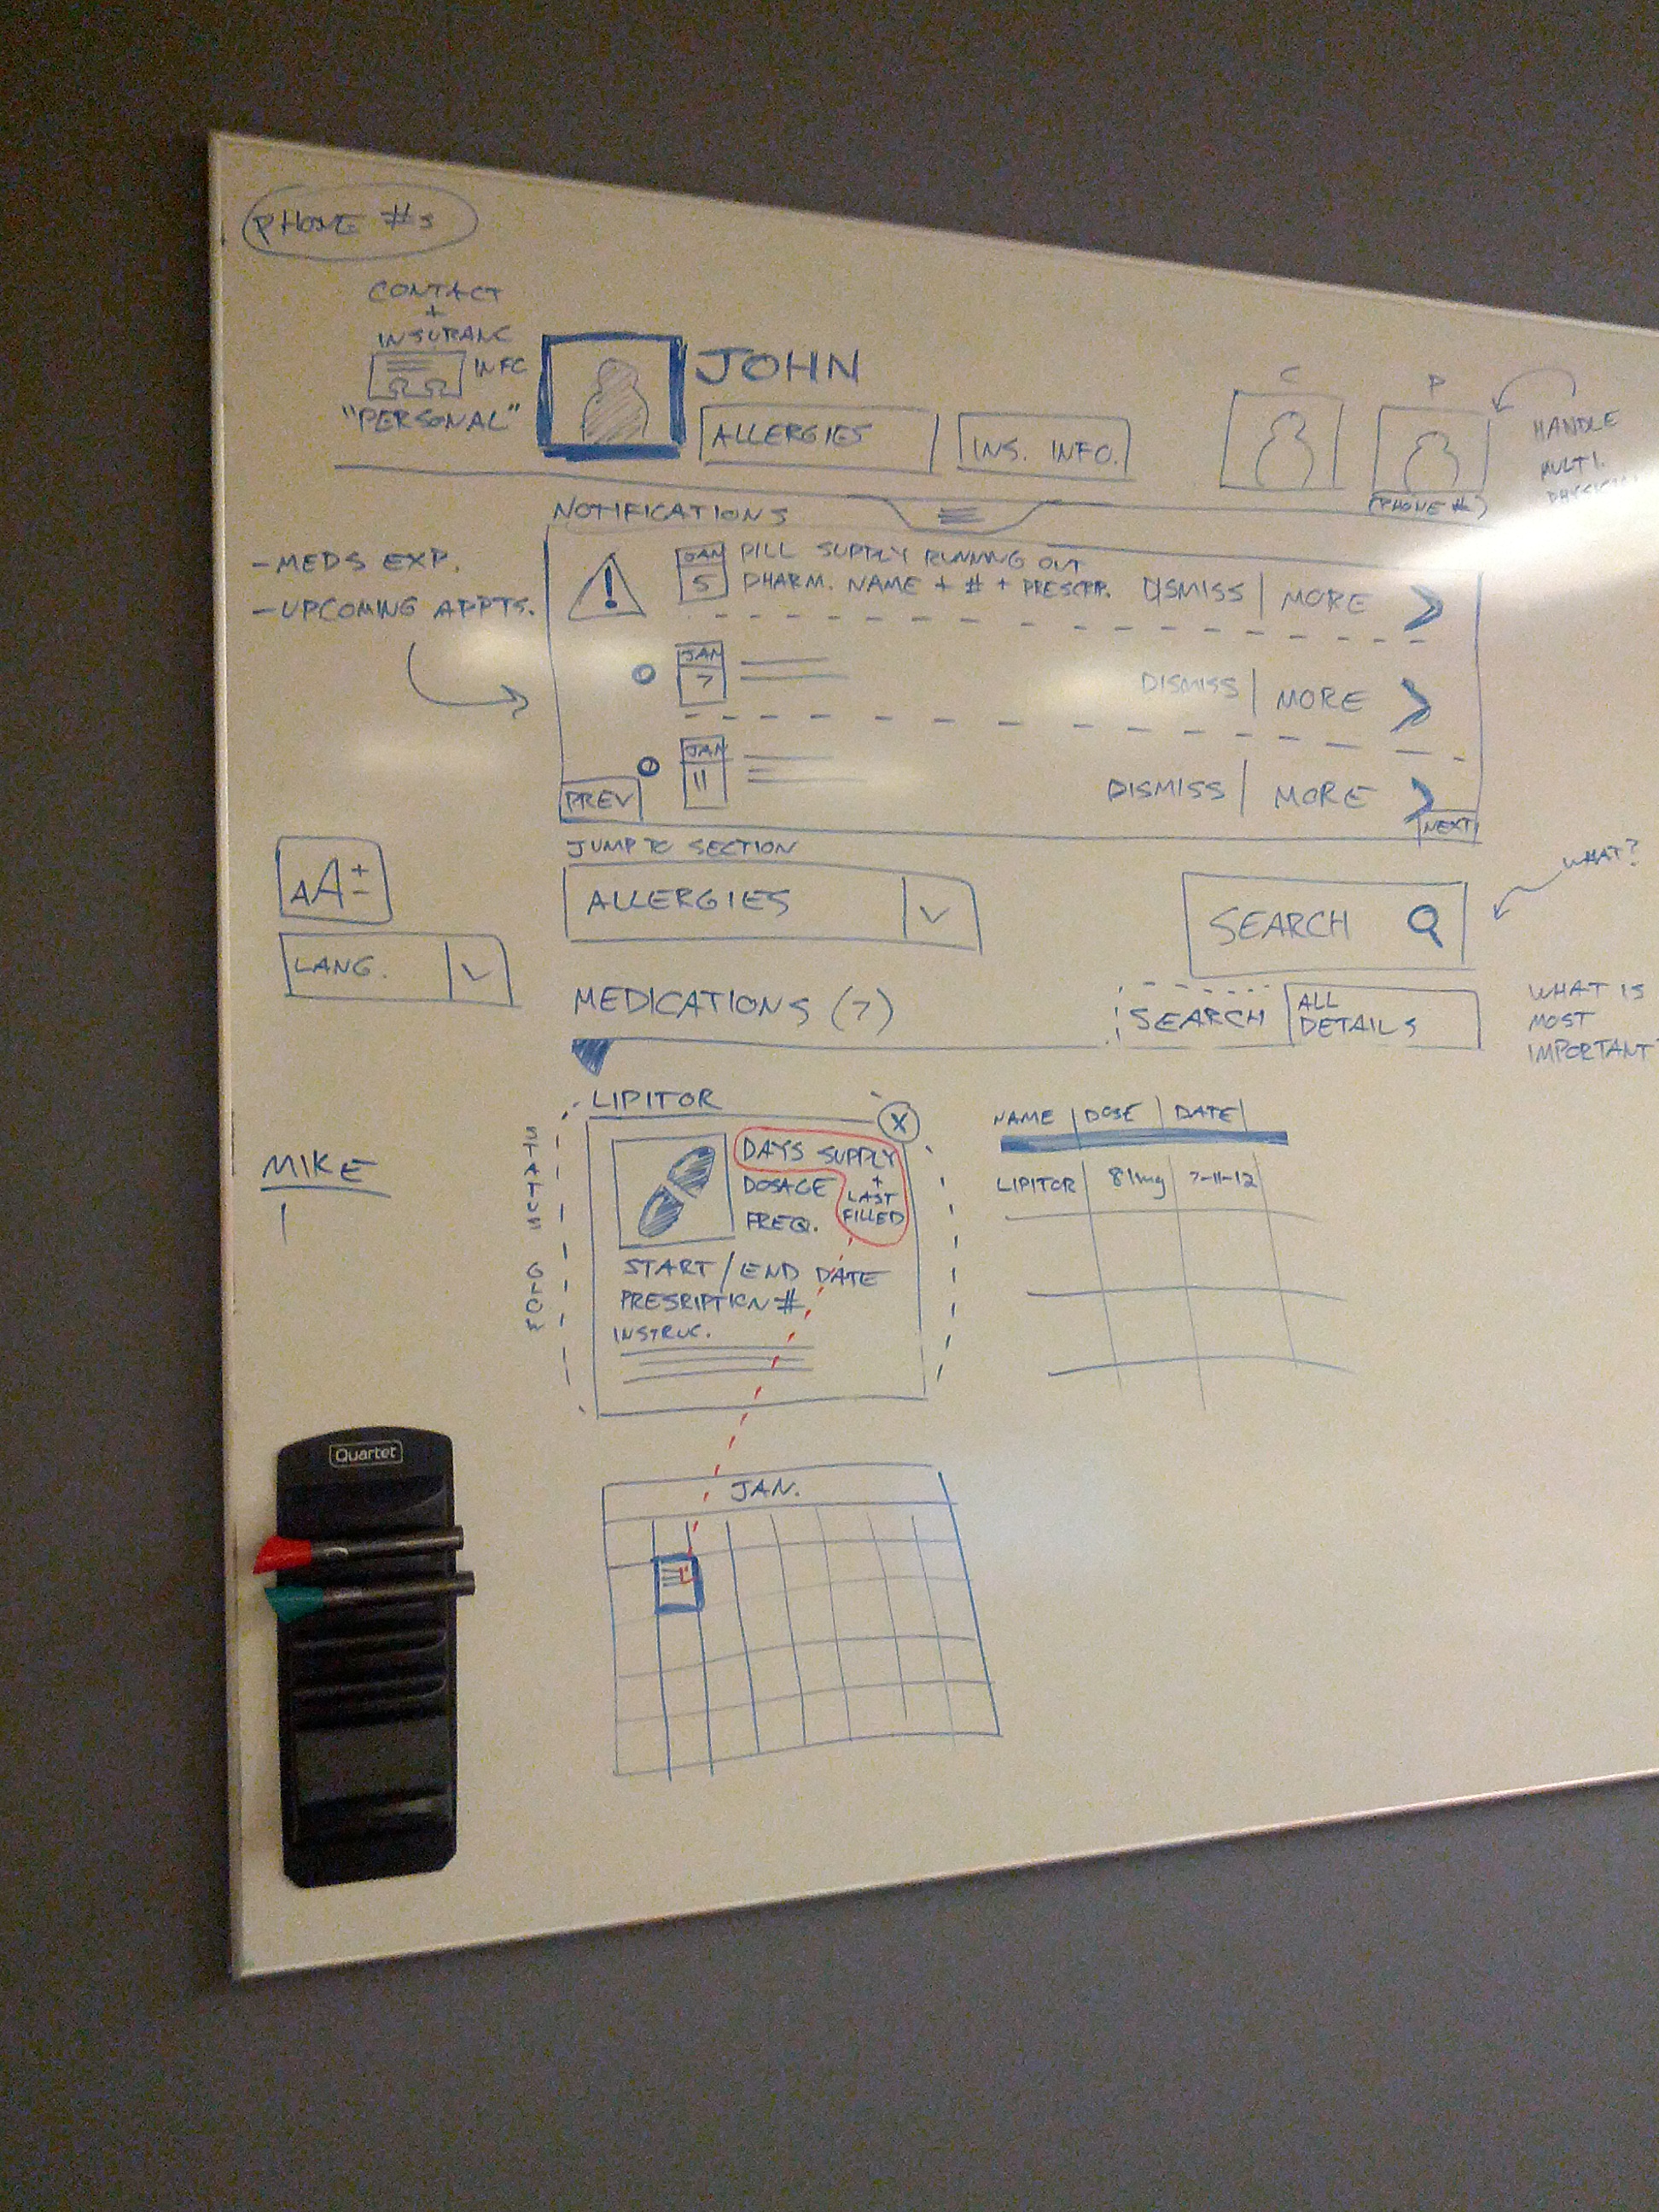 PHONE #s
CONTACT
+
INSURANC
INFO
"PERSONAL"
JOHN
ALLERGIES
INS. INFO.
C
P
(PHONE #)
HANDLE
MULTI.
NOTIFICATIONS
- MEDS EXP.
- UPCOMING APPTS.
JAN
5
PILL SUPPLY RUNNING OUT
PHARM. NAME + # + PRESCRP.
DISMISS | MORE
JAN
7
DISMISS | MORE
JAN
11
DISMISS | MORE
PREV
NEXT
JUMP TO SECTION
ALLERGIES
AA+-
LANG.
SEARCH
WHAT?
MEDICATIONS (7)
SEARCH
ALL
DETAILS
WHAT IS
MOST
IMPORTANT?
MIKE
STATUS GLOW
LIPITOR
X
DAYS SUPPLY
+
LAST
FILLED
DOSAGE
FREQ.
START/END DATE
PRESRIPTION #
INSTRUC.
NAME | DOSE | DATE |
LIPITOR 81mg 7-11-12
Quartet
JAN.